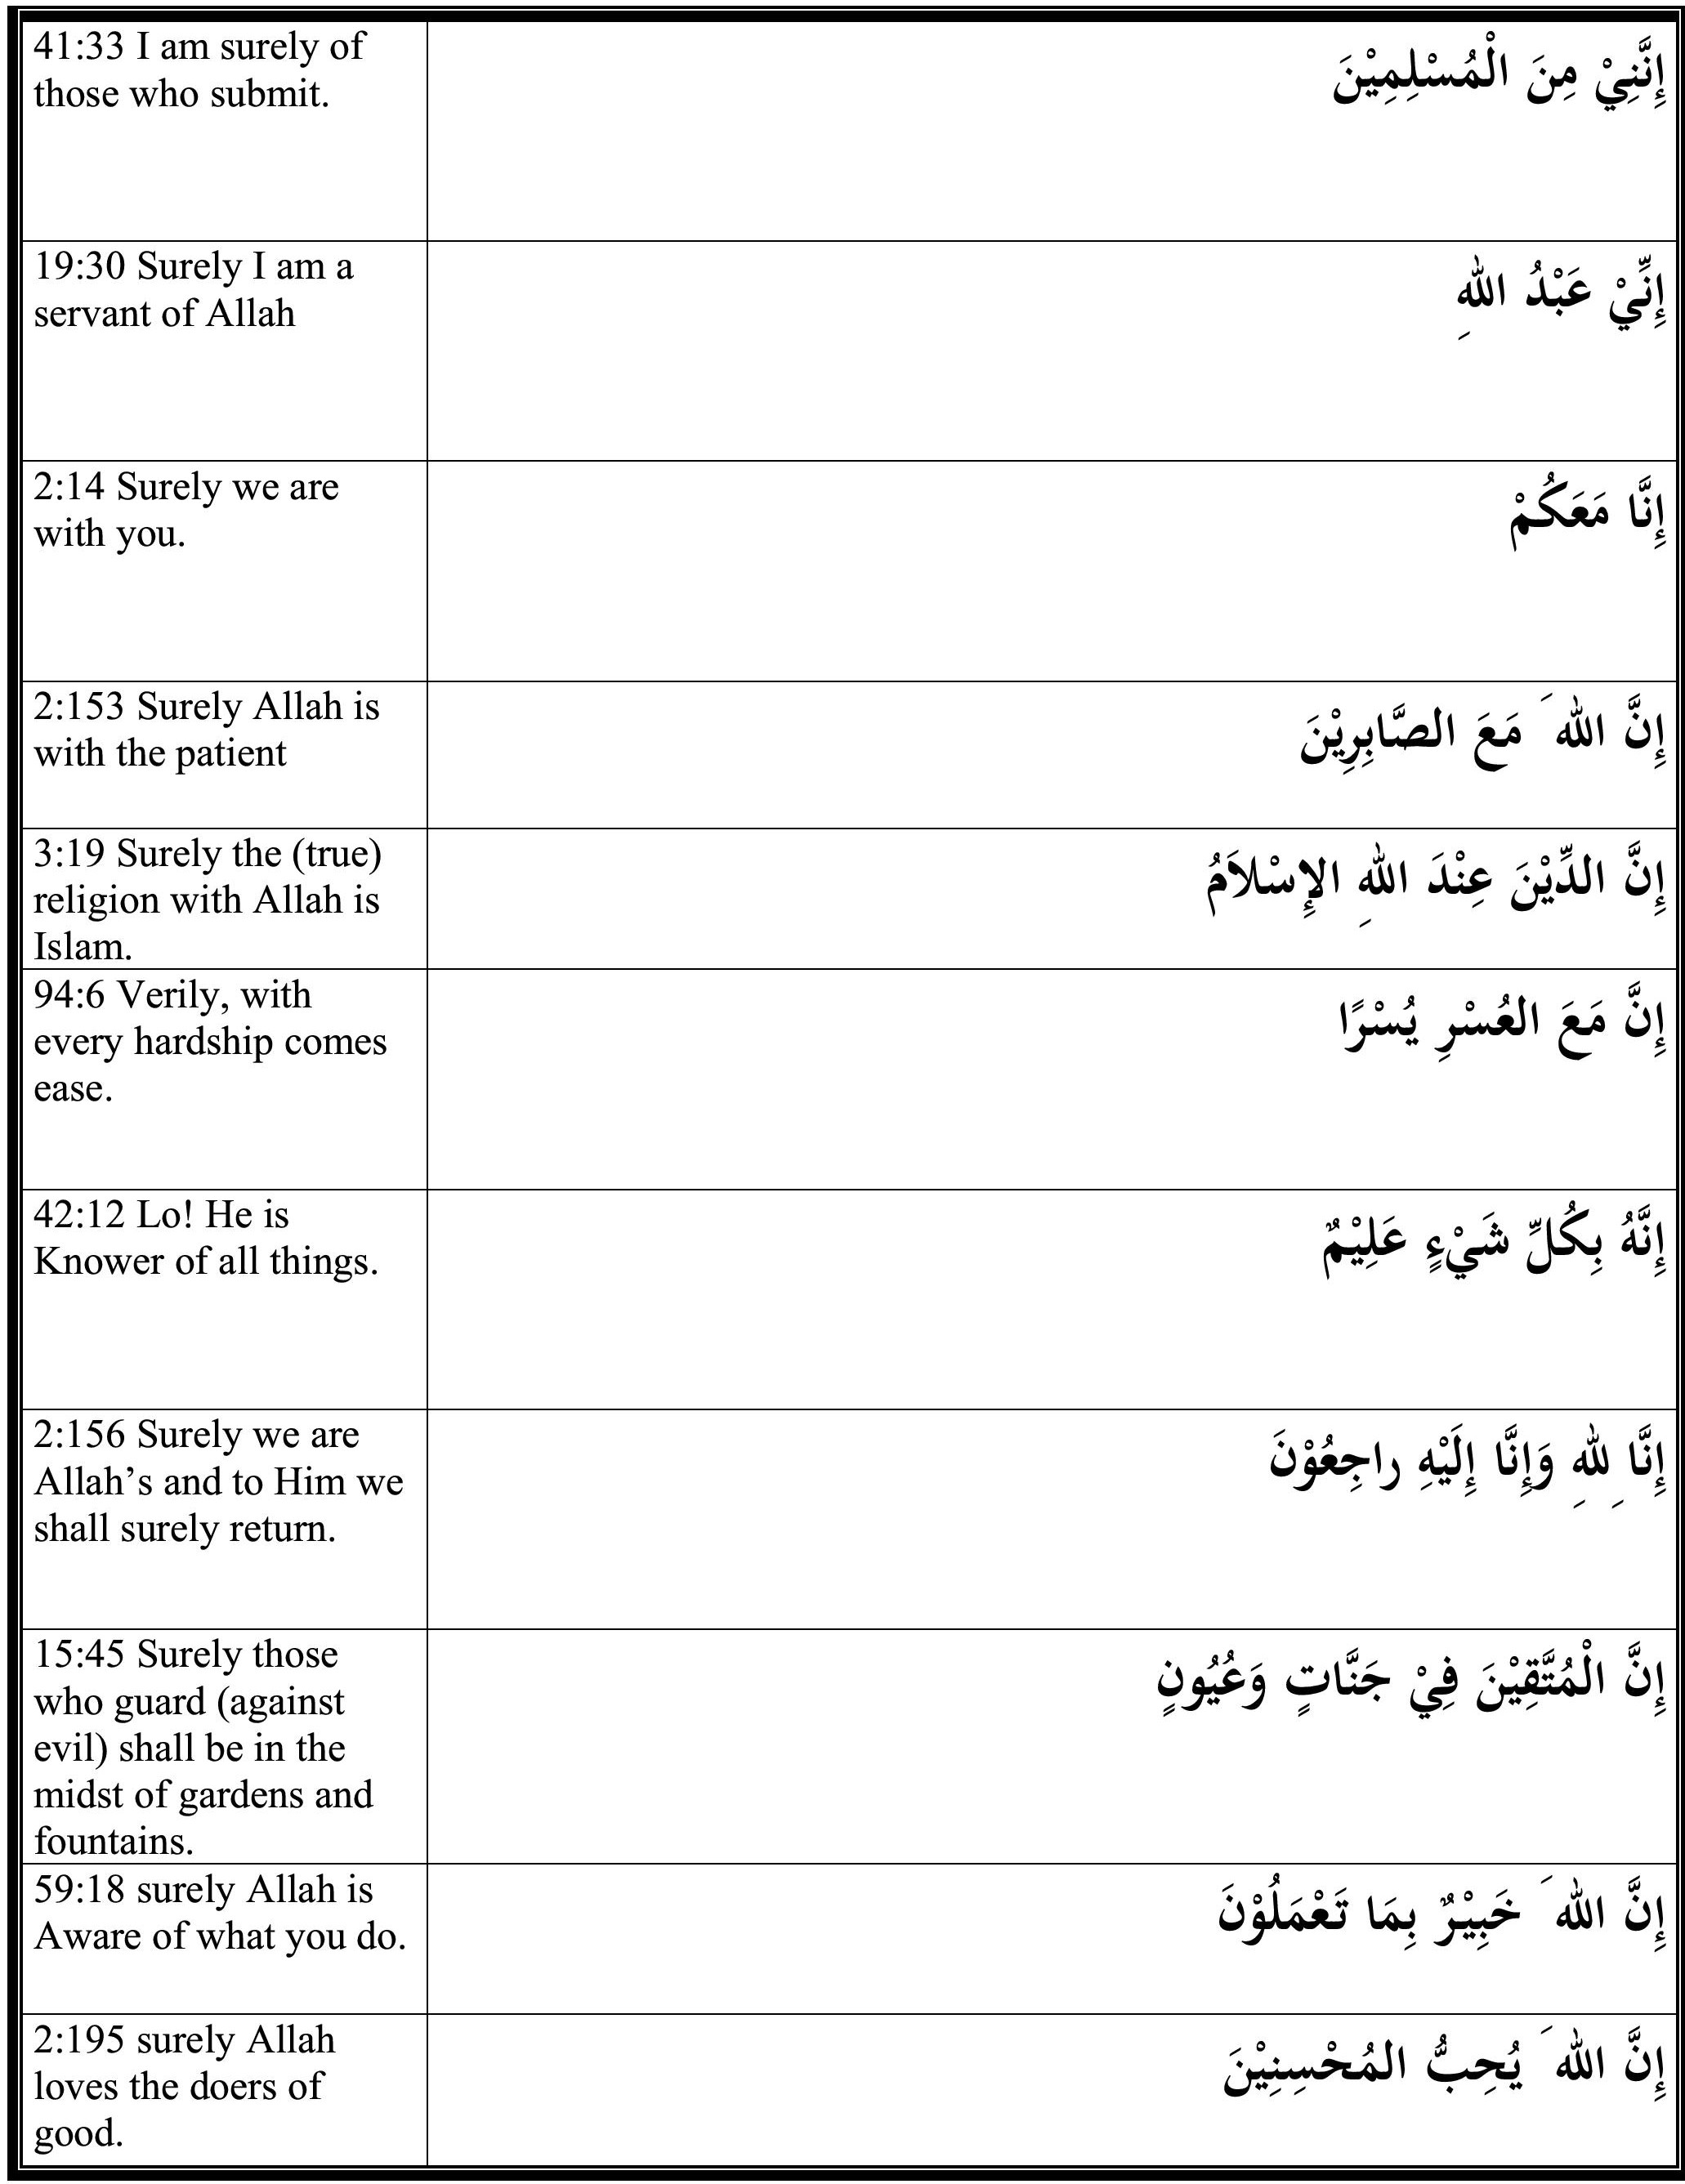 41:33 I am surely of
those who submit.
إِنَّنِيْ مِنَ الْمُسْلِمِيْنَ
19:30 Surely I am a
servant of Allah
إِنِّيْ عَبْدُ اللهِ
2:14 Surely we are
with you.
إِنَّا مَعَكُمْ
2:153 Surely Allah is
with the patient
إِنَّ اللهَ مَعَ الصَّابِرِيْنَ
3:19 Surely the (true)
religion with Allah is
Islam.
إِنَّ الدِّيْنَ عِنْدَ اللهِ الإِسْلاَمُ
94:6 Verily, with
every hardship comes
ease.
إِنَّ مَعَ العُسْرِ يُسْرًا
42:12 Lo! He is
Knower of all things.
إِنَّهُ بِكُلِّ شَيْءٍ عَلِيْمٌ
2:156 Surely we are
Allah’s and to Him we
shall surely return.
إِنَّا لِلهِ وَإِنَّا إِلَيْهِ راجِعُوْنَ
15:45 Surely those
who guard (against
evil) shall be in the
midst of gardens and
fountains.
إِنَّ الْمُتَّقِيْنَ فِيْ جَنَّاتٍ وَعُيُونٍ
59:18 surely Allah is
Aware of what you do.
إِنَّ اللهَ خَبِيْرٌ بِمَا تَعْمَلُوْنَ
2:195 surely Allah
loves the doers of
good.
إِنَّ اللهَ يُحِبُّ المُحْسِنِيْنَ